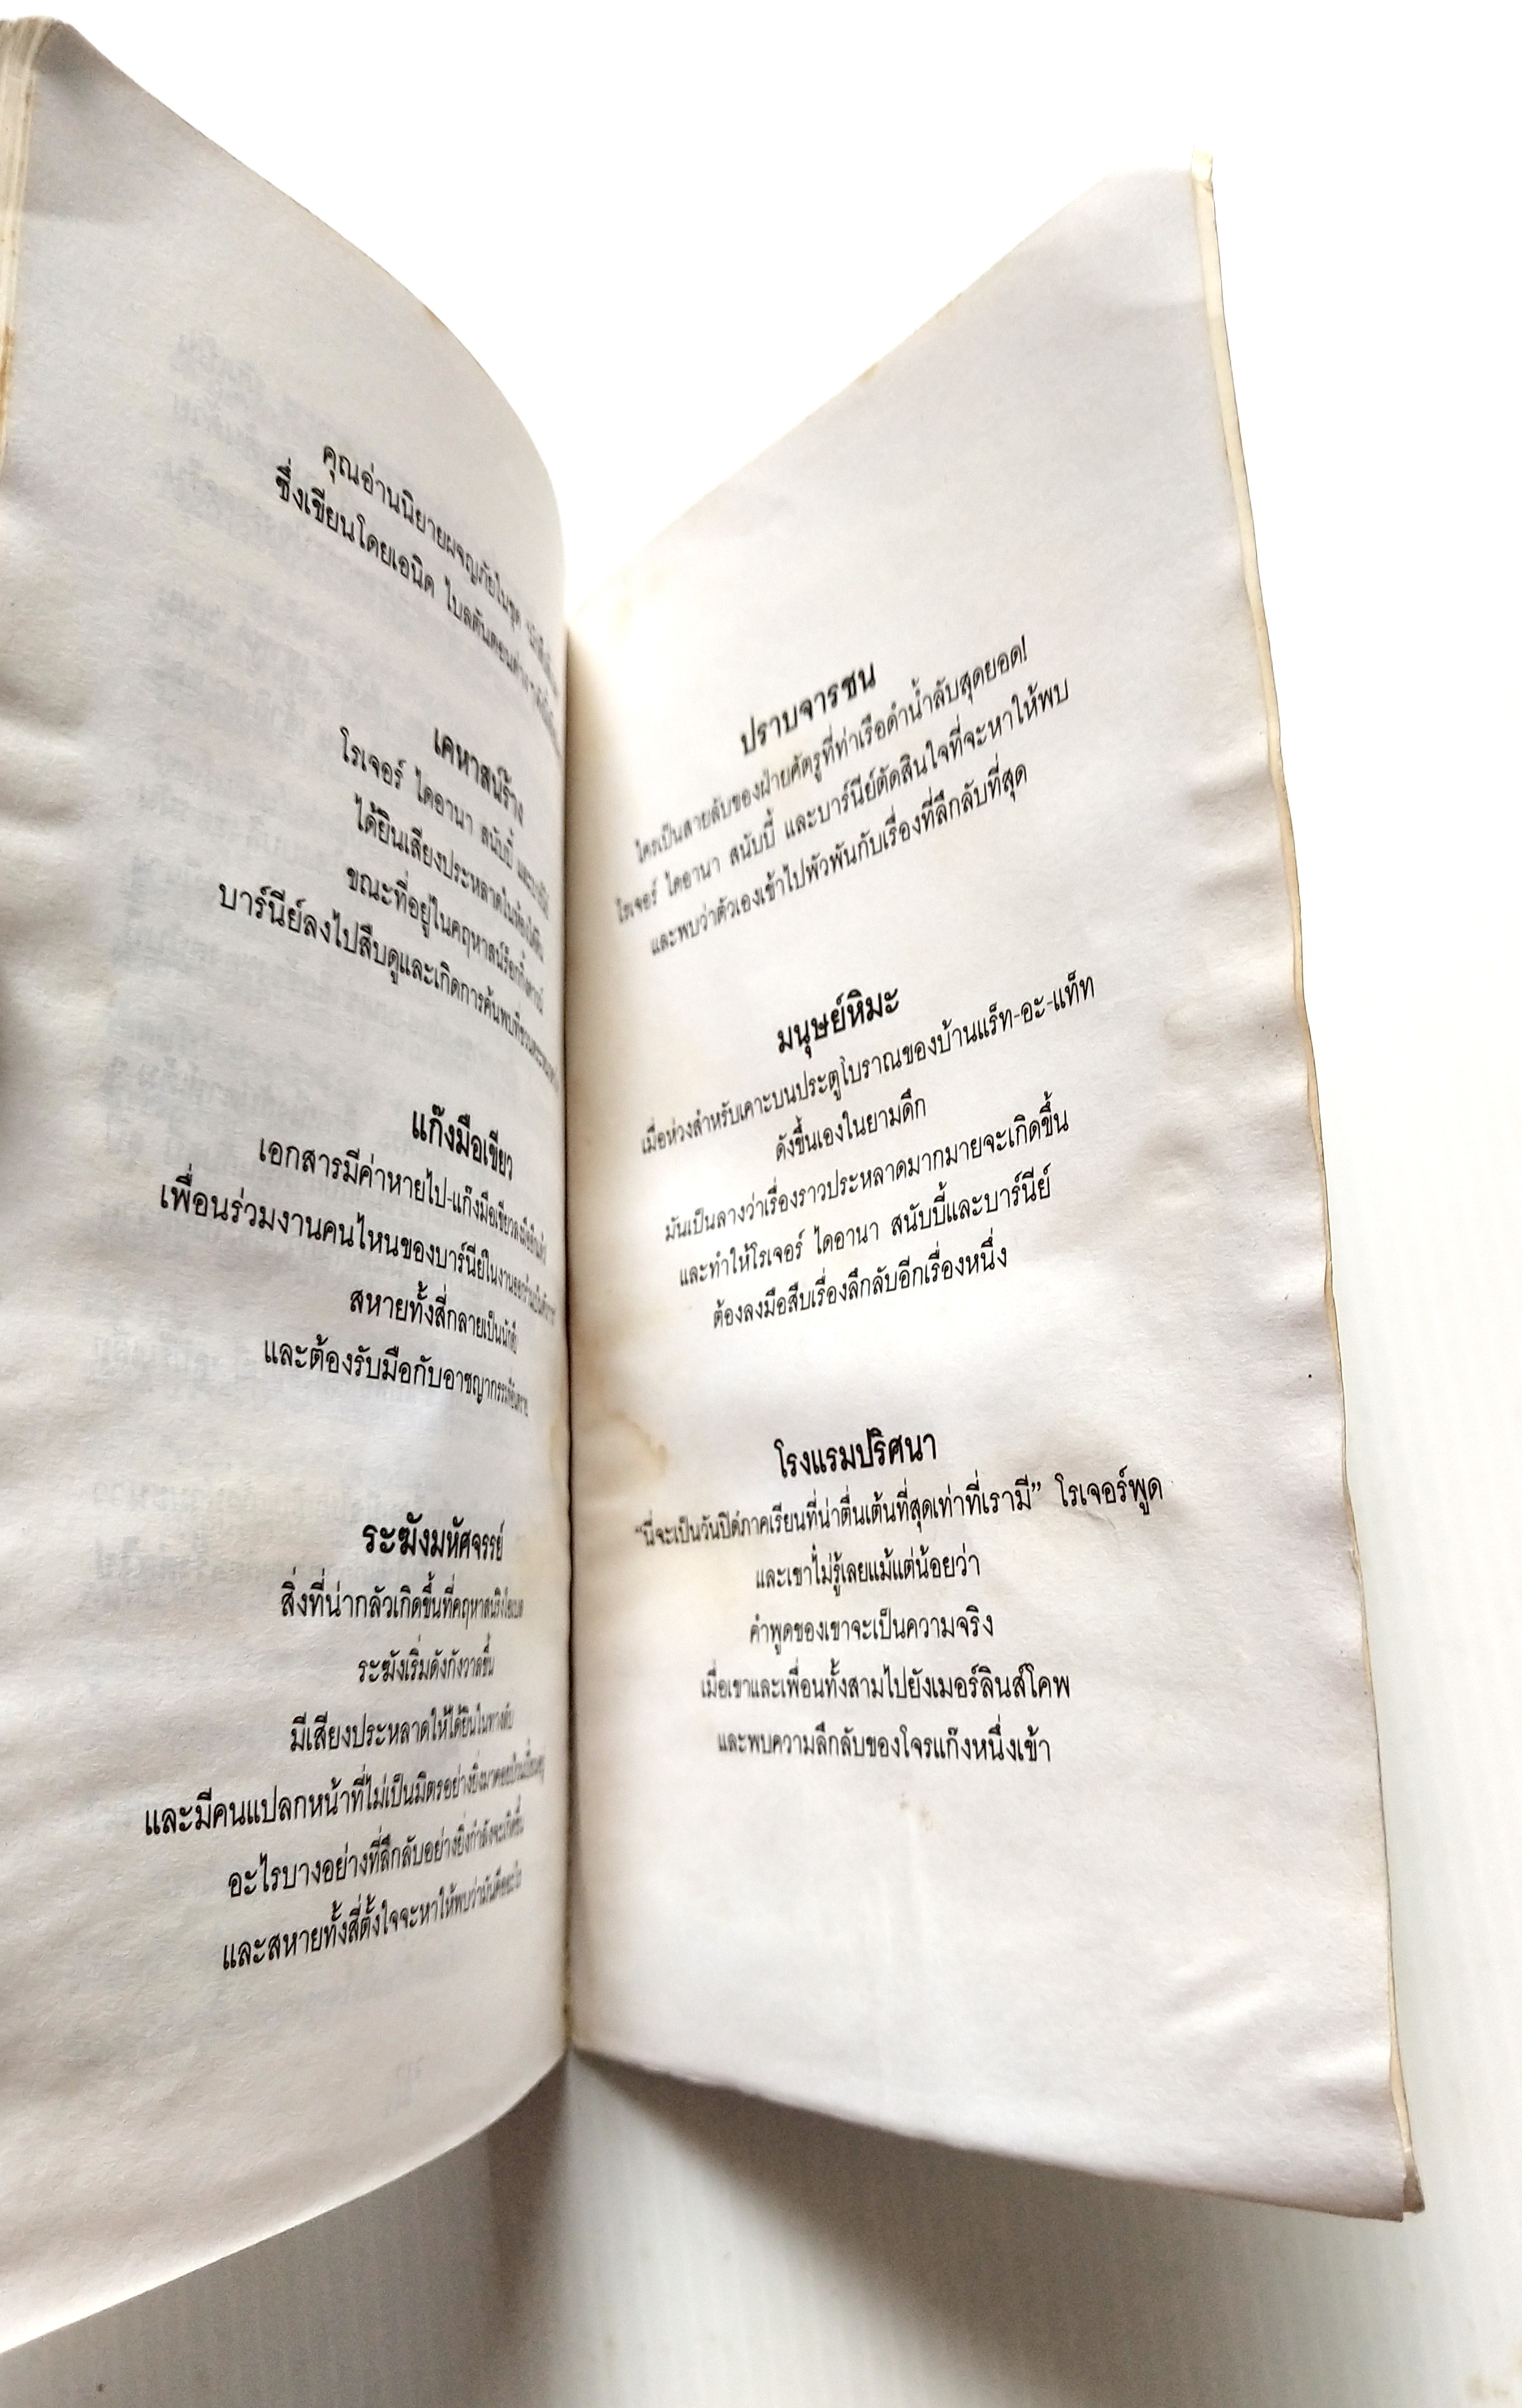 คุณอ่านนิยายผจญภัยในชุด
ซึ่งเขียนโดยเอนิด ไบลตันตอนต่าง
เคหาสน์ร้าง
โรเจอร์ ไดอานา สนับบี้ และบาร์นีย์
ได้ยินเสียงประหลาดในห้องใต้ดิน
ขณะที่อยู่ในคฤหาสน์ร็อกกิ้งดาวน์
บาร์นีย์ลงไปสืบดูและเกิดการค้นพบที่
แก๊งมือเขียว
เอกสารมีค่าหายไป-แก๊งมือเขียวลงมืออีกแล้ว
เพื่อนร่วมงานคนไหนของบาร์นีย์ในงาน
สหายทั้งสี่กลายเป็นนักสืบ
และต้องรับมือกับอาชญากรรม
ระฆังมหัศจรรย์
สิ่งที่น่ากลัวเกิดขึ้นที่คฤหาสน์ริงโอเบล
ระฆังเริ่มดังกังวาดขึ้น
มีเสียงประหลาดให้ได้ยินในทางลับ
และมีคนแปลกหน้าที่ไม่เป็นมิตรอย่างยิ่งมา
อะไรบางอย่างที่ลึกลับอย่างยิ่งกำลังจะเกิดขึ้น
และสหายทั้งสี่ตั้งใจจะหาให้พบว่ามันคืออะไร
ปราบจารชน
ใครเป็นสายลับของฝ่ายศัตรูที่ท่าเรือดำน้ำลับสุดยอด!
โรเจอร์ ไดอานา สนับบี้ และบาร์นีย์ตัดสินใจที่จะหาให้พบ
และพบว่าตัวเองเข้าไปพัวพันกับเรื่องที่ลึกลับที่สุด
มนุษย์หิมะ
เมื่อห่วงสำหรับเคาะบนประตูโบราณของบ้านแร็ท-อะ-แท็ท
ดังขึ้นเองในยามดึก
มันเป็นลางว่าเรื่องราวประหลาดมากมายจะเกิดขึ้น
และทำให้โรเจอร์ ไดอานา สนับบี้และบาร์นีย์
ต้องลงมือสืบเรื่องลึกลับอีกเรื่องหนึ่ง
โรงแรมปริศนา
“นี่จะเป็นวันปิดภาคเรียนที่น่าตื่นเต้นที่สุดเท่าที่เรามี” โรเจอร์พูด
และเขาไม่รู้เลยแม้แต่น้อยว่า
คำพูดของเขาจะเป็นความจริง
เมื่อเขาและเพื่อนทั้งสามไปยังเมอร์ลินส์โคพ
และพบความลึกลับของโจรแก๊งหนึ่งเข้า